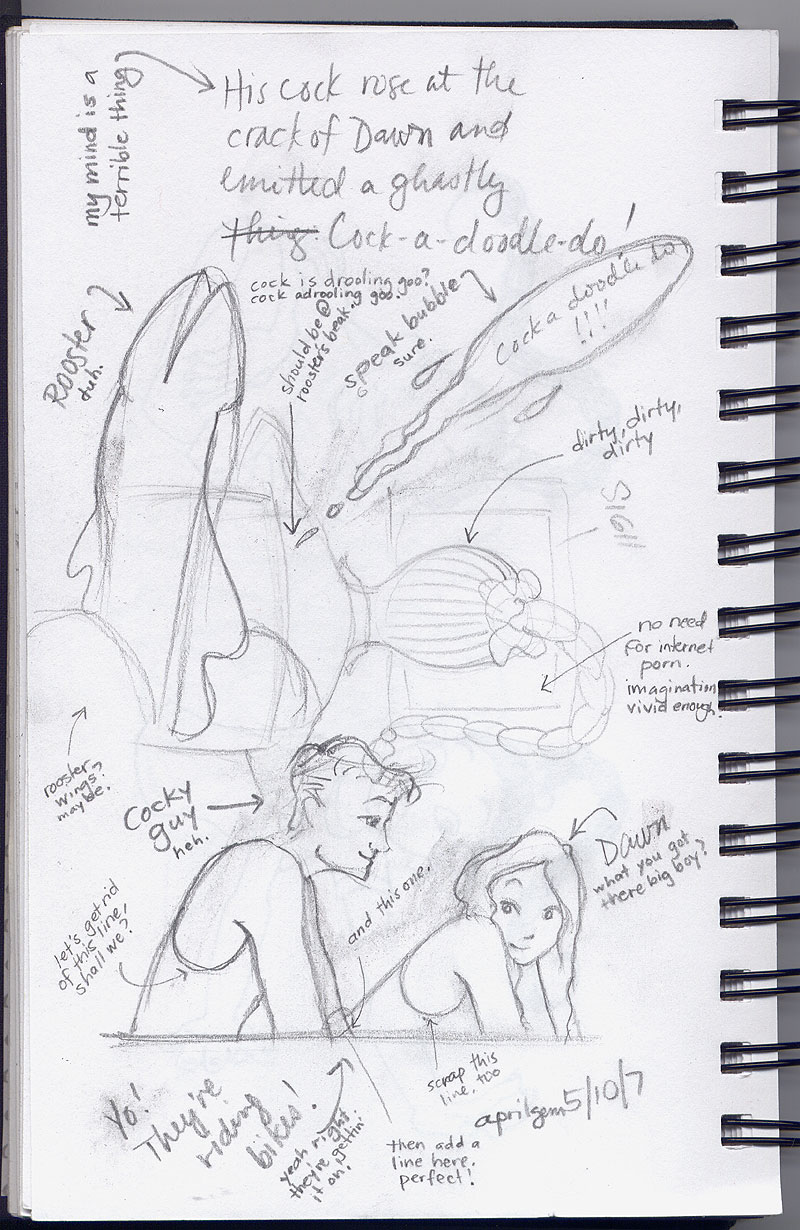 my mind is a
terrible thing
His cock rose at the
crack of Dawn and
emitted a ghastly
thing. Cock-a-doodle-do!
cock is drooling goo?
cock adrooling goo.
should be @
rooster's beak.
speak bubble
sure.
Cock a doodle do
!!!!
Rooster
duh.
dirty, dirty,
dirty
no need
for internet
porn.
imagination
vivid enough!
rooster
wings?
maybe.
Cocky
guy
heh.
Dawn
what you got
there big boy?
and this one.
let's get rid
of this line,
shall we?
scrap this
line, too
aprilgem 5/10/7
Yo!
They're
riding
bikes!
yeah right
they're gettin'
it on!
then add a
line here.
perfect!